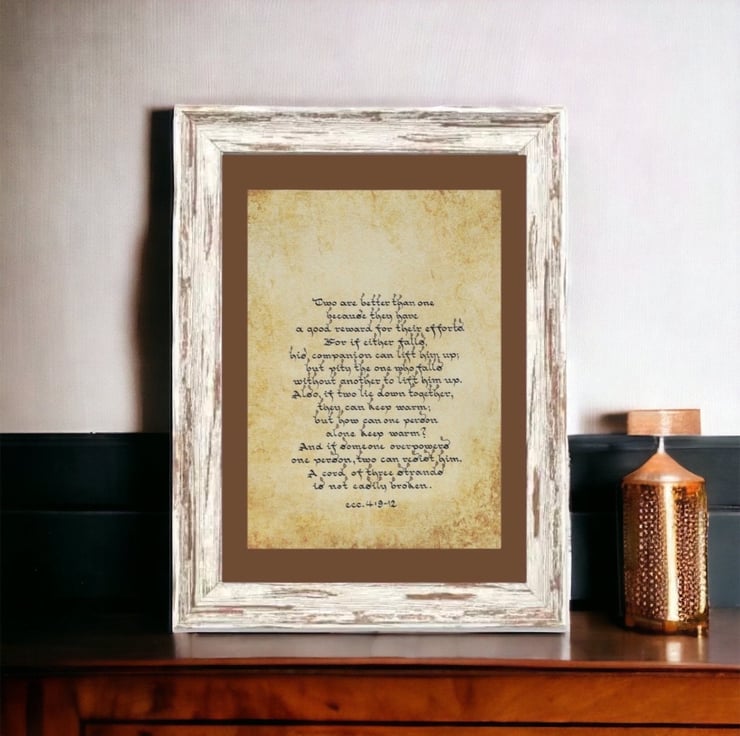 Two are better than one
because they have
a good reward for their efforts
For if either falls,
his companion can lift him up;
but pity the one who falls
without another to lift him up.
Also, if two lie down together,
they can keep warm;
but how can one person
alone keep warm?
And if someone overpowers
one person, two can resist him.
A cord of three strands
is not easily broken.
ecc. 4:9-12